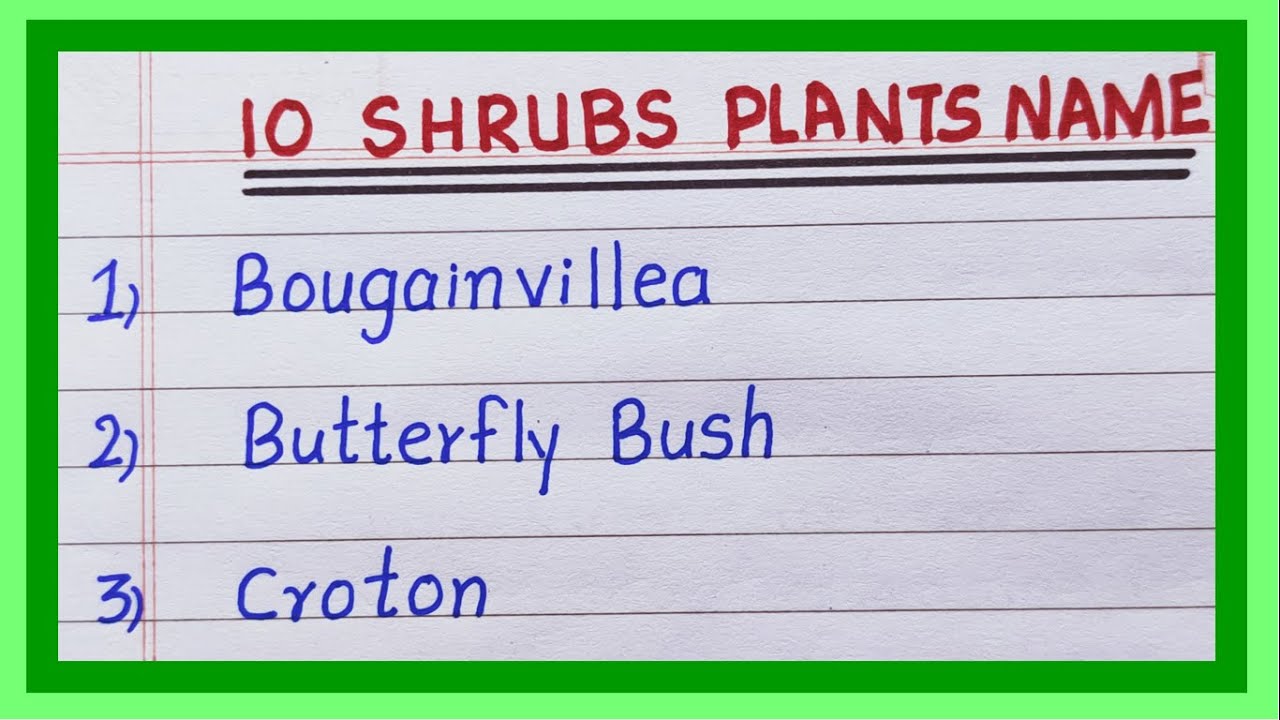 10 SHRUBS PLANTS NAME
1) Bougainvillea
2) Butterfly Bush
3) Croton